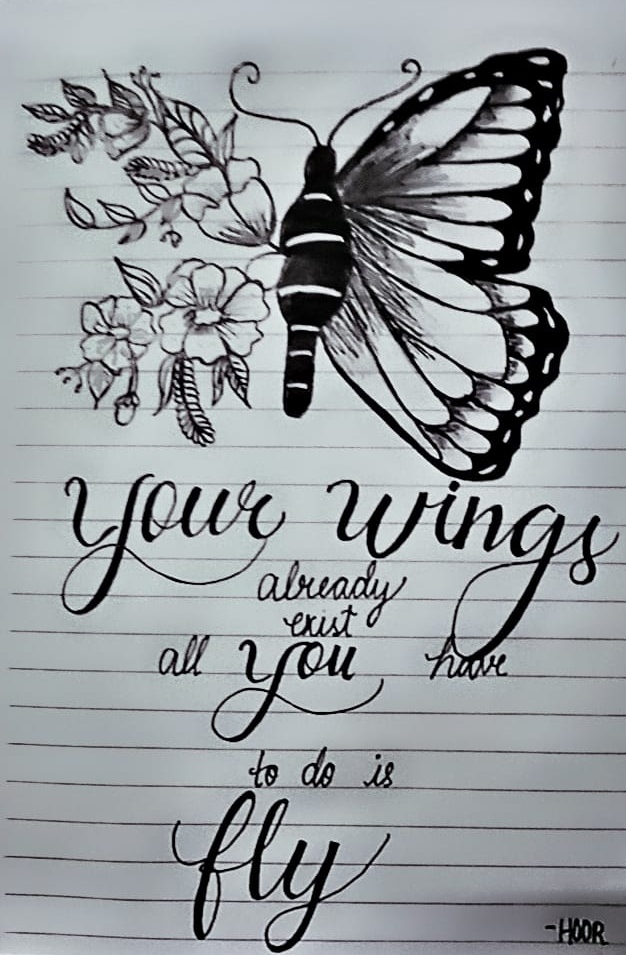 your wings
already
exist
all you have
to do is
fly
-HOOR